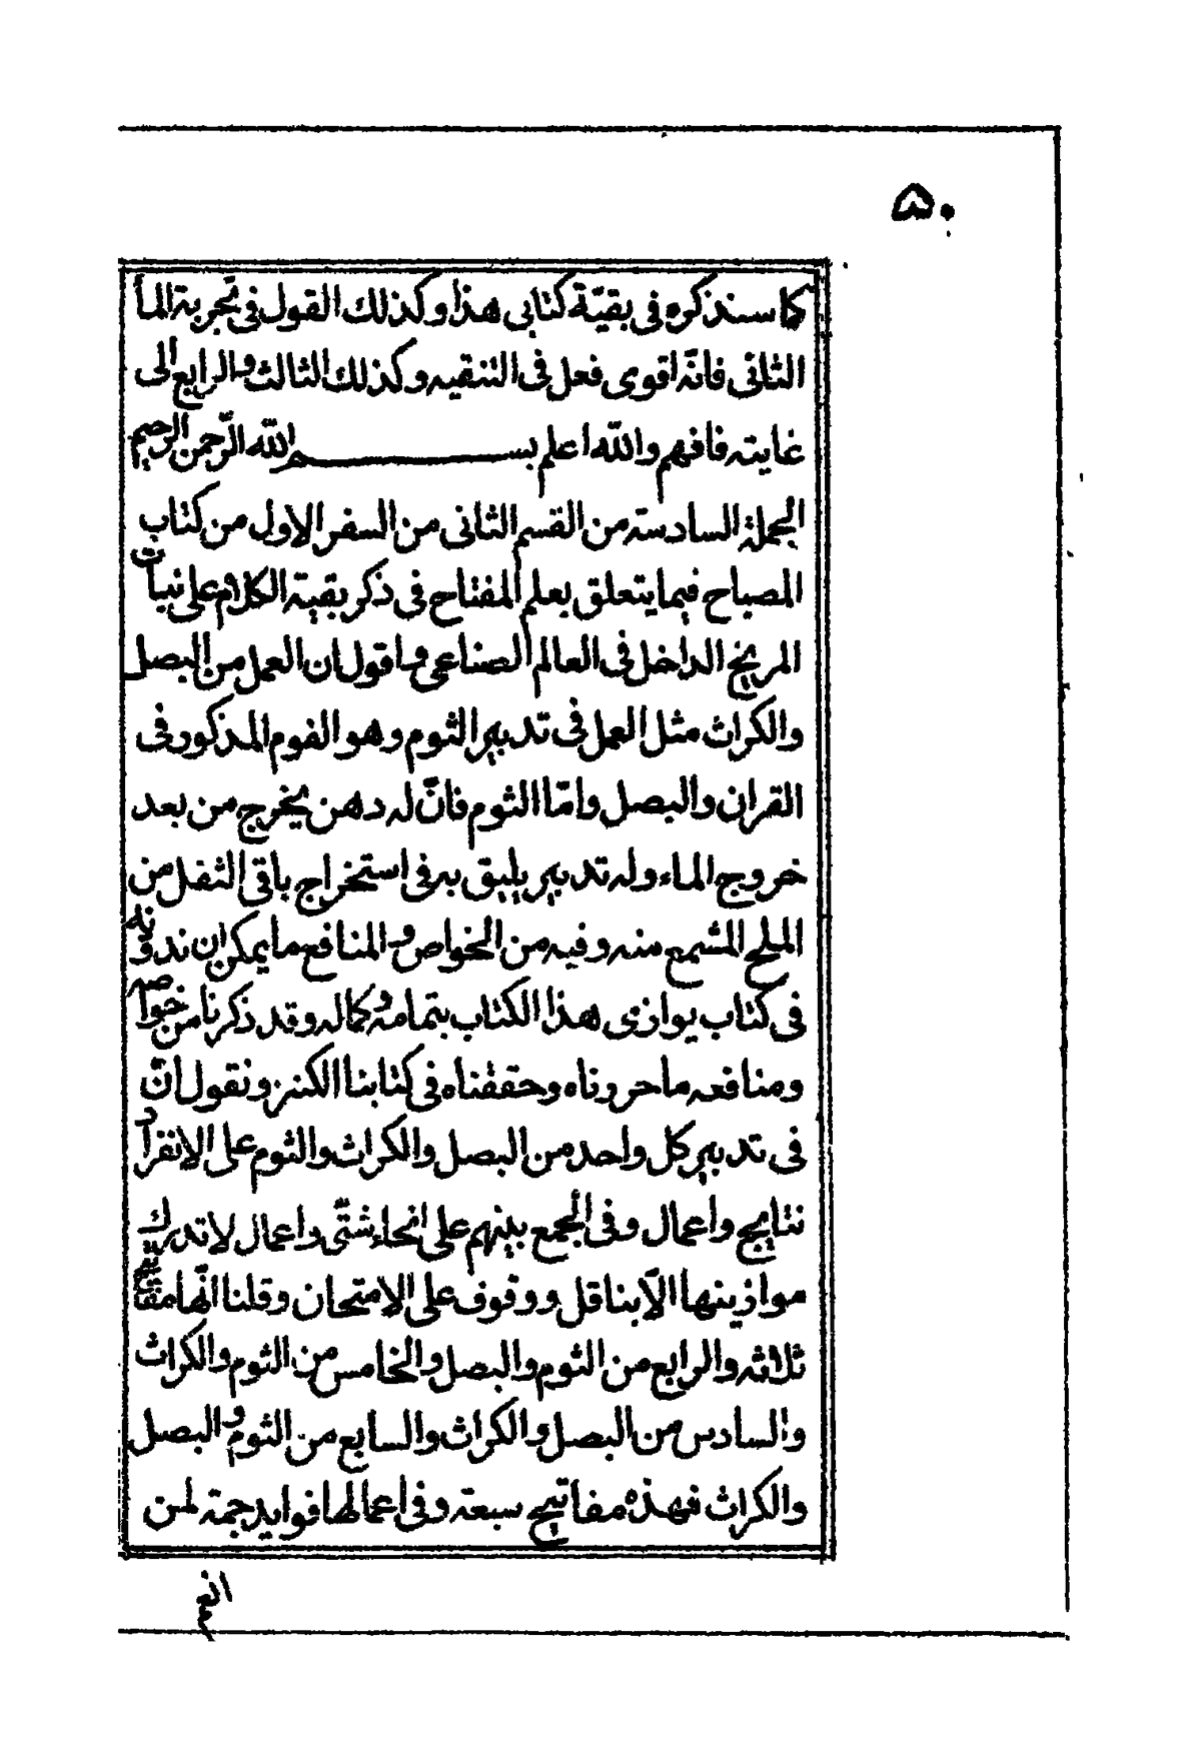 ۵۰
كما سنذكره فى بقيّة كتابى هذا وكذلك القول فى تجربة الماٴ
الثانى فانّه اقوى فعل فى التنقيه وكذلك الثالث والرابع الى
غايته فافهم والله اعلم بســــــم الله الرّحمن الرحيم
الجملة السادسة من القسم الثانى من السفر الاول من كتاب
المصباح فيما يتعلق بعلم المفتاح فى ذكر بقية الكلام على نبات
المريخ الداخل فى العالم الصناعى واقول ان العمل من البصل
والكراث مثل العمل فى تدبير الثوم وهو الفوم المذكور فى
القران والبصل وامّا الثوم فانّ له دهن يخرج من بعد
خروج الماء وله تدبير يليق به فى استخراج باقى الثفل من
الملح المشمع منه وفيه من الخواص والمنافع ما يمكن ان ندوّنه
فى كتاب يوازى هذا الكتاب بتمامه وكماله وقد ذكرنا من خواصه
ومنافعه ما حررناه وحققناه فى كتابنا الكنز ونقول انّ
فى تدبير كل واحد من البصل والكراث والثوم على الانفراد
نتايج واعمال وفى الجمع بينهم على انحاء شتّى واعمال لا تدرك
موازينها الّا بناقل ووقوف على الامتحان وقلنا انّها مفاتيح
ثلاثه والرابع من الثوم والبصل والخامس من الثوم والكراث
والسادس من البصل والكراث والسابع من الثوم والبصل
والكراث فهذه مفاتيح سبعة وفى اعمالها فوايد جمة لمن
انعم